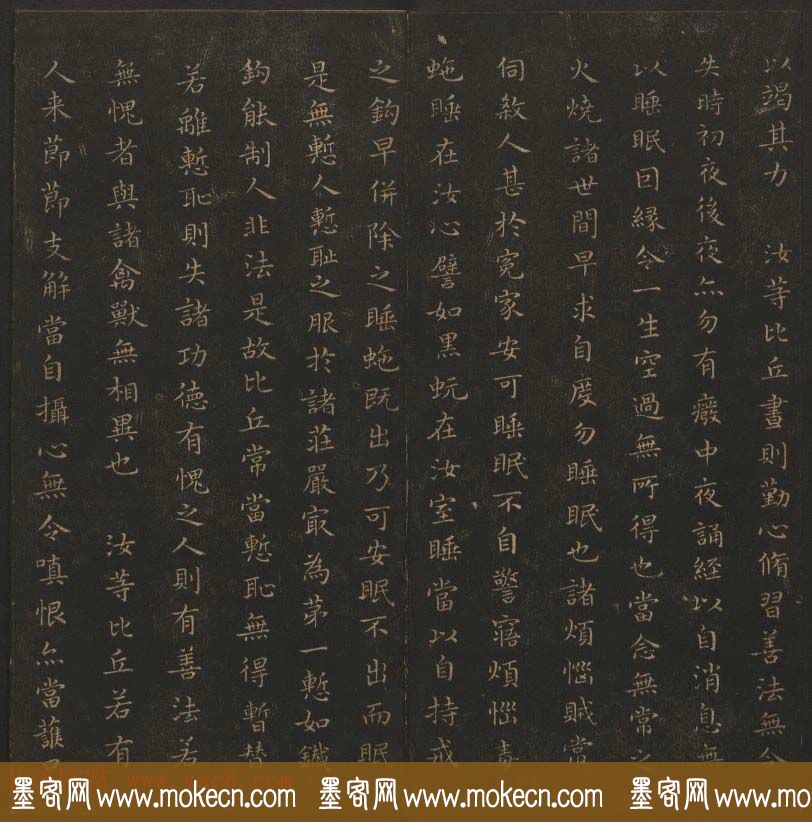 以竭其力　汝等比丘晝則勤心脩習善法無令
失時初夜後夜亦勿有癈中夜誦經以自消息無
以睡眠因緣令一生空過無所得也當念無常之
火燒諸世間早求自度勿睡眠也諸煩惱賊常
伺煞人甚扵寃家安可睡眠不自警寤煩惱毒
虵睡在汝心譬如黒蚖在汝室睡當以自持戒
之鈎早併除之睡虵既出乃可安眠不出而眠
是無慙人慙耻之服扵諸莊嚴冣為苐一慙如鐵
鈎能制人非法是故比丘常當慙恥無得暫替
若離慙恥則失諸功德有愧之人則有善法若
無愧者與諸禽獸無相異也　汝等比丘若有
人来節節支解當自攝心無令嗔恨亦當護
www.yac8.com
墨客网 www.mokecn.com 墨客网 www.mokecn.com 墨客网 www.mokecn.com